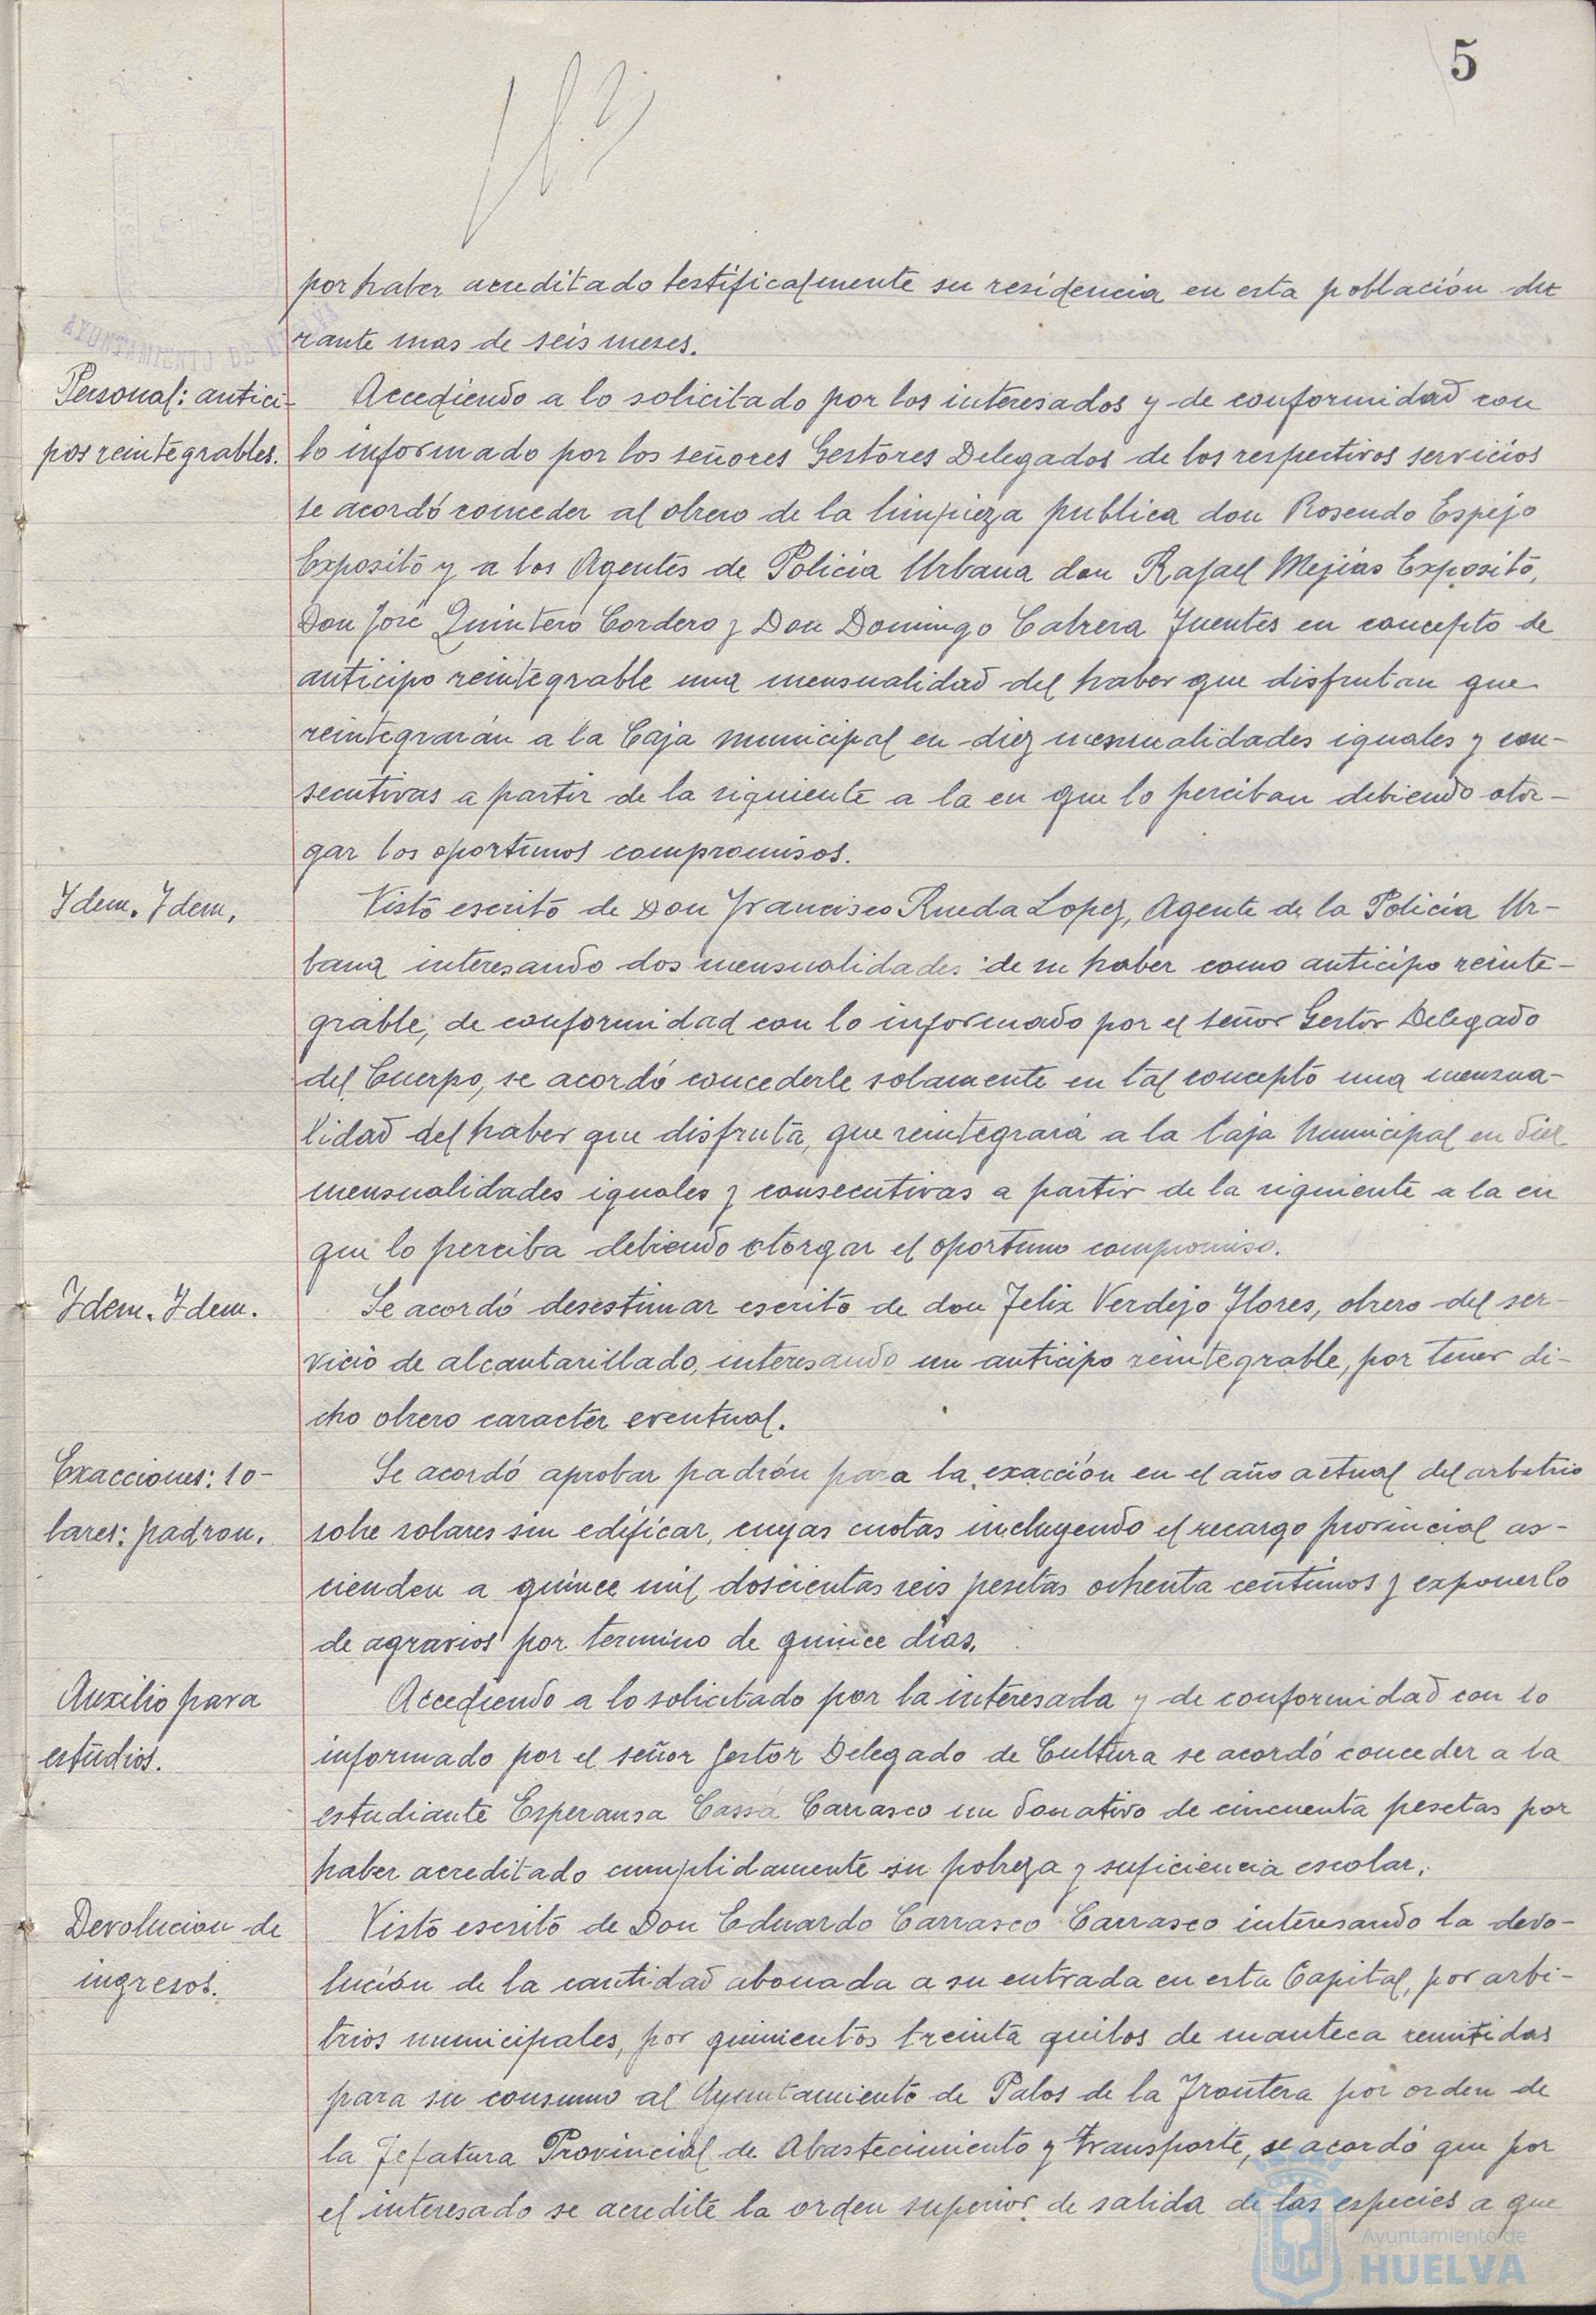 5
por haber acreditado testificalmente su residencia en esta población du
rante mas de seis meses.
Personal: antici-
pos reintegrables.
Accediendo a lo solicitado por los interesados y de conformidad con
lo informado por los señores Gestores Delegados de los respectivos servicios
se acordó conceder al obrero de la limpieza publica don Rosendo Espejo
Exposito y a los Agentes de Policia Urbana don Rafael Mejias Exposito,
Don José Quintero Cordero y Don Domingo Cabrera Fuentes en concepto de
anticipo reintegrable una mensualidad del haber que disfrutan que
reintegrarán a la Caja municipal en diez mensualidades iguales y con-
secutivas a partir de la siguiente a la en que lo perciban debiendo otor-
gar los oportunos compromisos.
Idem. Idem.
Visto escrito de Don Francisco Rueda Lopez, Agente de la Policia Ur-
bana interesando dos mensualidades de su haber como anticipo reinte-
grable, de conformidad con lo informado por el señor Gestor Delegado
del Cuerpo, se acordó concederle solamente en tal concepto una mensua-
lidad del haber que disfruta, que reintegrará a la Caja Municipal en diez
mensualidades iguales y consecutivas a partir de la siguiente a la en
que lo perciba debiendo otorgar el oportuno compromiso.
Idem. Idem.
Se acordó desestimar escrito de don Felix Verdejo Flores, obrero del ser-
vicio de alcantarillado, interesando un anticipo reintegrable, por tener di-
cho obrero caracter eventual.
Exacciones: so-
lares: padron.
Se acordó aprobar padrón para la exacción en el año actual del arbitrio
sobre solares sin edificar, cuyas cuotas incluyendo el recargo provincial as-
cienden a quince mil doscientas seis pesetas ochenta centimos y exponerlo
de agravios por termino de quince dias.
Auxilio para
estudios.
Accediendo a lo solicitado por la interesada y de conformidad con lo
informado por el señor Gestor Delegado de Cultura se acordó conceder a la
estudiante Esperansa Cassá Carrasco un donativo de cincuenta pesetas por
haber acreditado cumplidamente su pobreza y suficiencia escolar.
Devolucion de
ingresos.
Visto escrito de Don Eduardo Carrasco Carrasco interesando la devo-
lución de la cantidad abonada a su entrada en esta Capital, por arbi-
trios municipales, por quinientos treinta quilos de manteca remitidas
para su consumo al Ayuntamiento de Palos de la Frontera por orden de
la Jefatura Provincial de Abastecimiento y Transporte, se acordó que por
el interesado se acredite la orden superior de salida de las especies a que
Ayuntamiento de
HUELVA